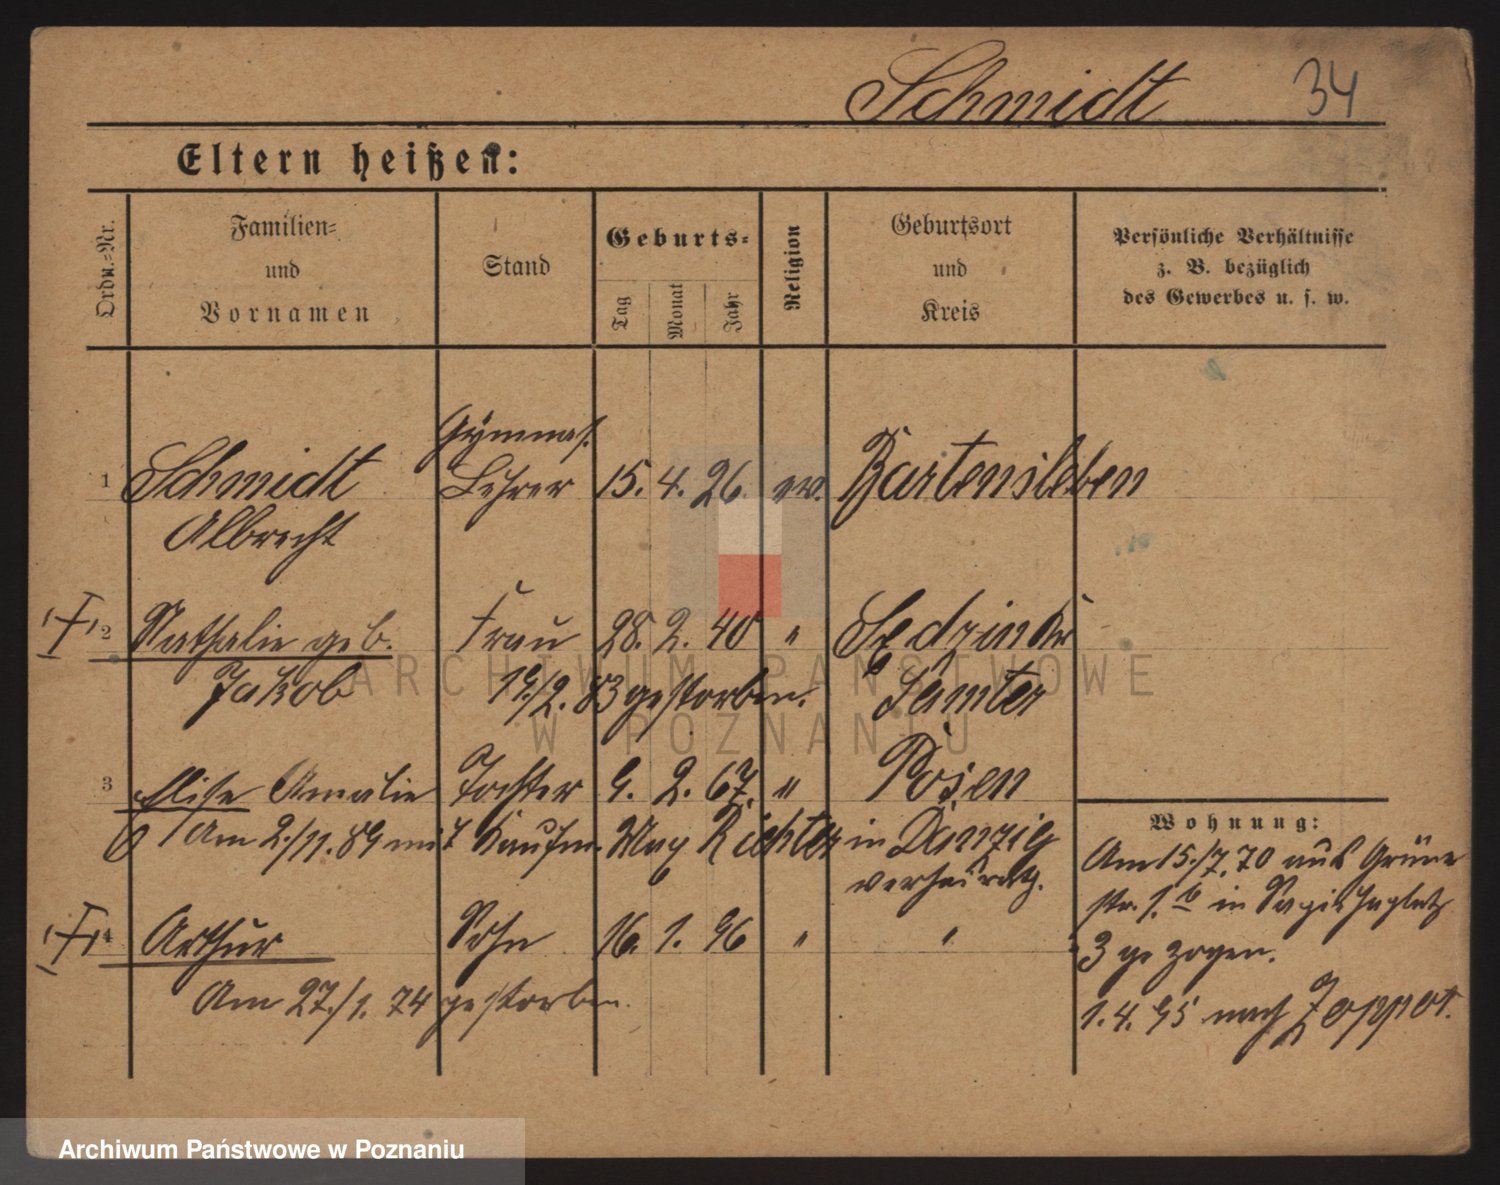 Schmidt 34
Eltern heißen:
Ordn.-Nr.
Familien- und Vornamen
Stand
Geburts-
Tag Monat Jahr
Religion
Geburtsort und Kreis
Persönliche Verhältnisse
z. B. bezüglich
des Gewerbes u. s. w.
Gymnas.
1 Schmidt Lehrer 15. 4. 26 ev. Bartensleben
Albrecht
2 Nathalie geb. Frau 28. 2. 40 "
Jakob 19/2. 83 gestorben. Samter
3 Elise Amalie Tochter 9. 2. 67. " Posen
Am 2./11. 89 mit Kaufm. Max Richter in Danzig
verheirat.
4 Arthur Sohn 16. 1. " "
Am 27./1. 74 gestorben.
Wohnung:
Am 15./7. 70 aus Grüne
str. in Sapiehaplatz
3 gezogen.
1. 4. 95 nach Zoppot.
ARCHIWUM PAŃSTWOWE
W POZNANIU
Archiwum Państwowe w Poznaniu